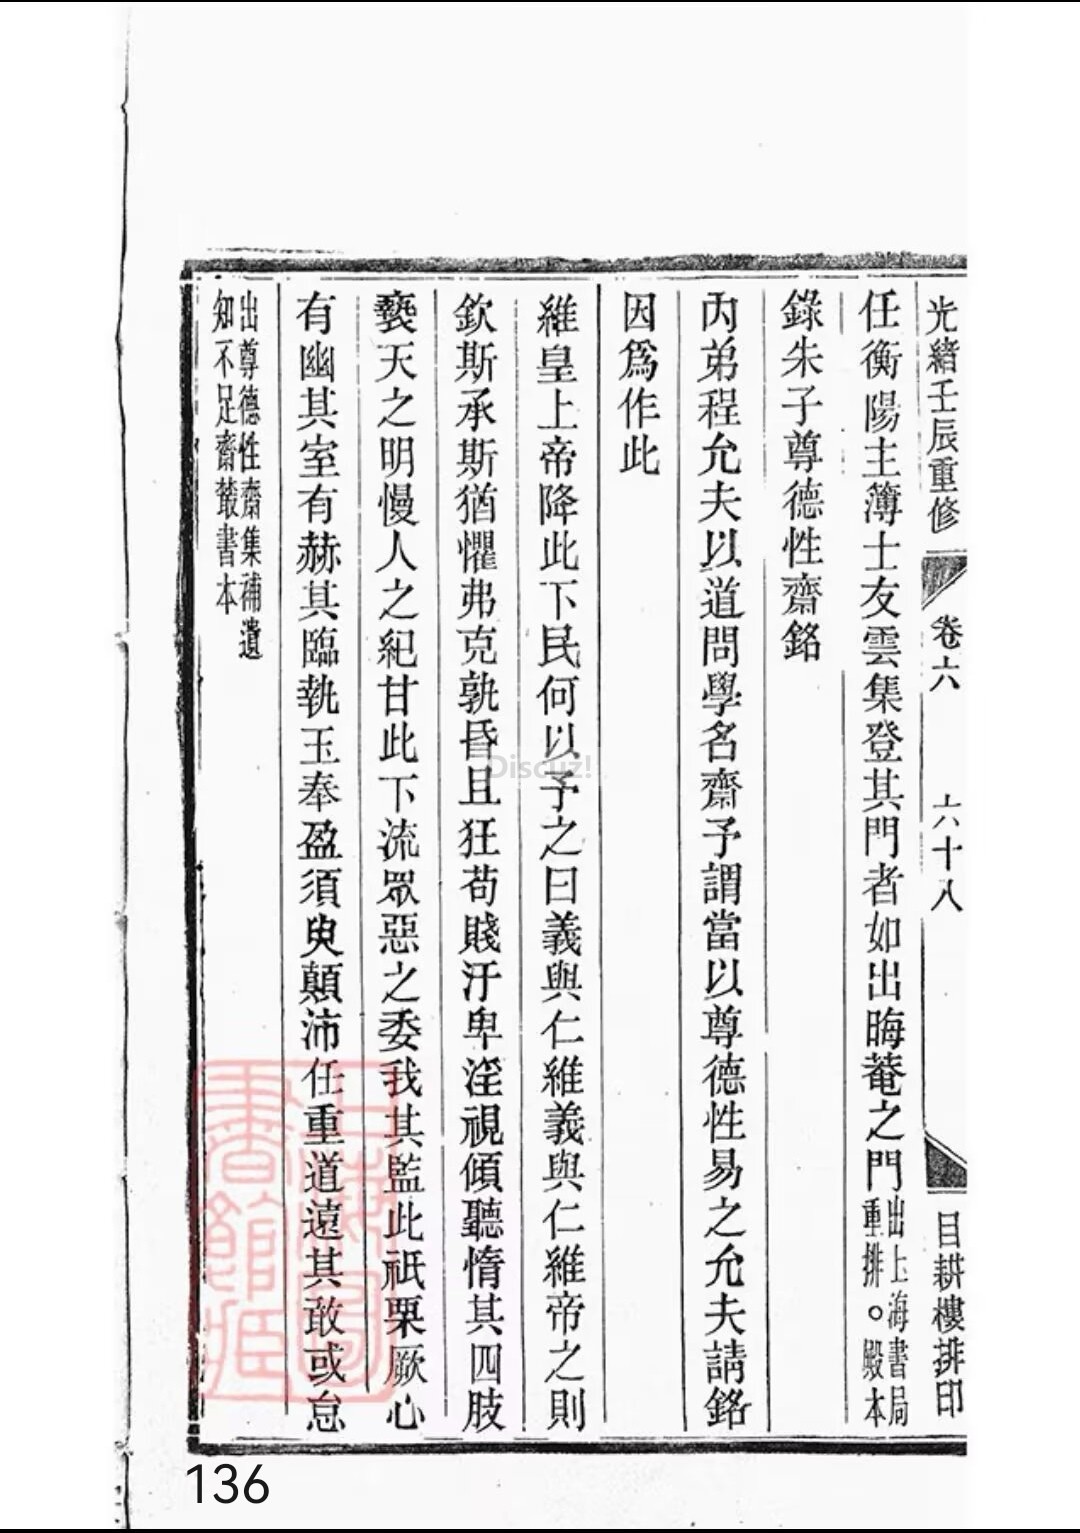 光緒壬辰重修 卷六 六十八 目耕樓排印
任衡陽主簿士友雲集登其門者如出晦菴之門出上海書局重排。殿本
錄朱子尊德性齋銘
內弟程允夫以道問學名齋予謂當以尊德性易之允夫請銘
因爲作此
維皇上帝降此下民何以予之曰義與仁維義與仁維帝之則
欽斯承斯猶懼弗克孰昏且狂苟賤汙卑淫視傾聽惰其四肢
褻天之明慢人之紀甘此下流眾惡之委我其監此祇栗厥心
有幽其室有赫其臨執玉奉盈須臾顛沛任重道遠其敢或怠
出尊德性齋集補遺
知不足齋叢書本
上海圖書館藏
Discuz!
136